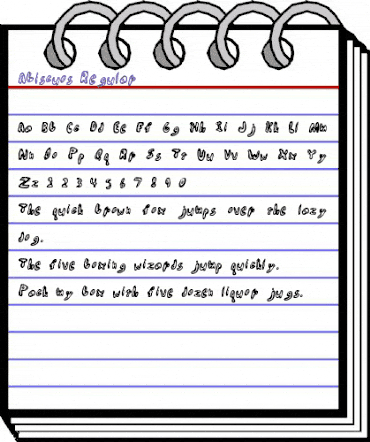 Abiscuos Regular
Aa Bb Cc Dd Ee Ff Gg Hh Ii Jj Kk Ll Mm
Nn Oo Pp Qq Rr Ss Tt Uu Vv Ww Xx Yy
Zz 1 2 3 4 5 6 7 8 9 0
The quick brown fox jumps over the lazy
dog.
The five boxing wizards jump quickly.
Pack my box with five dozen liquor jugs.